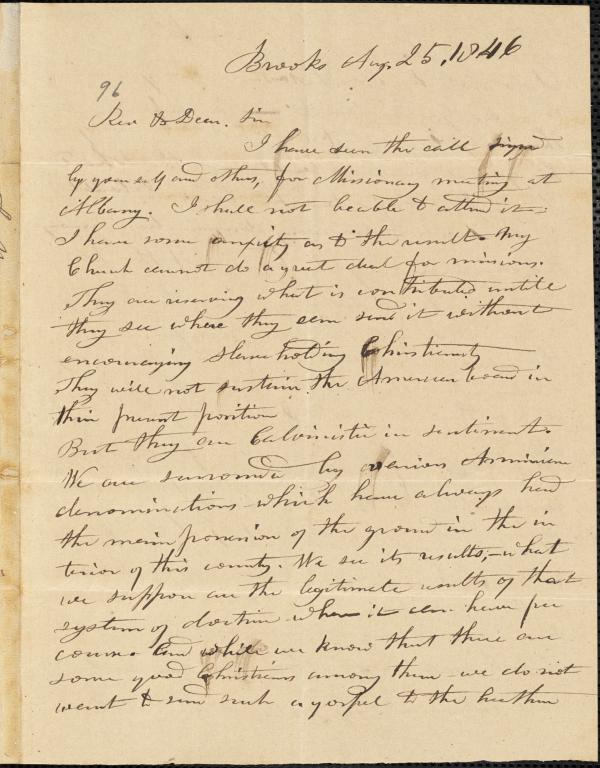 Brooks Aug. 25, 1846
96
Rev & Dear. Sir
I have seen the call signed
by yourself and others, for Missionary meeting at
Albany. I shall not be able to attend it.
I have some anxiety as to the result. My
Church cannot do a great deal for missions.
They are reserving what is contributed untill
they see where they can send it without
encouraging slaveholding Christianity
They will not sustain the American board in
their present position
But they are Calvinistic in sentiment.
We are surrounded by various Arminian
denominations which have always had
the main possession of the ground in the in
terior of this county. We see its results,—what
we suppose are the legitimate results of that
system of doctrine when it can have free
course. And while we know that there are
some good Christians among them we do not
want to send such a gospel to the heathen